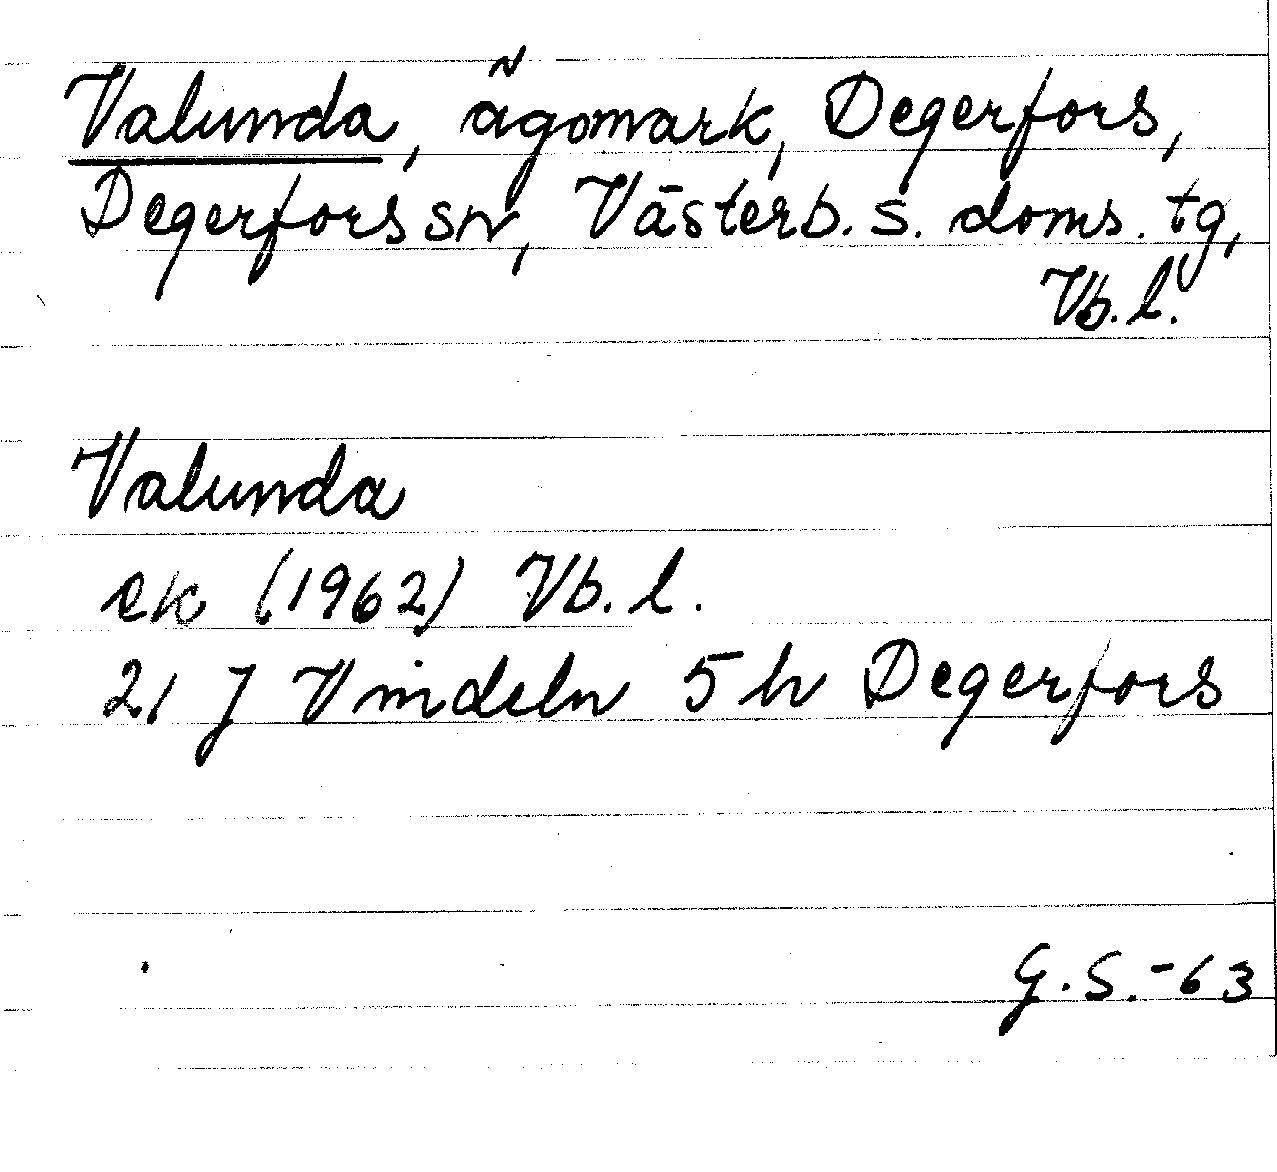 Valunda, ägomark, Degerfors,
Degerfors sn, Västerb. s. doms. tg,
Vb. l.
Valunda
ek (1962) Vb. l.
21 J Vindeln 5 h Degerfors
G.S.-63